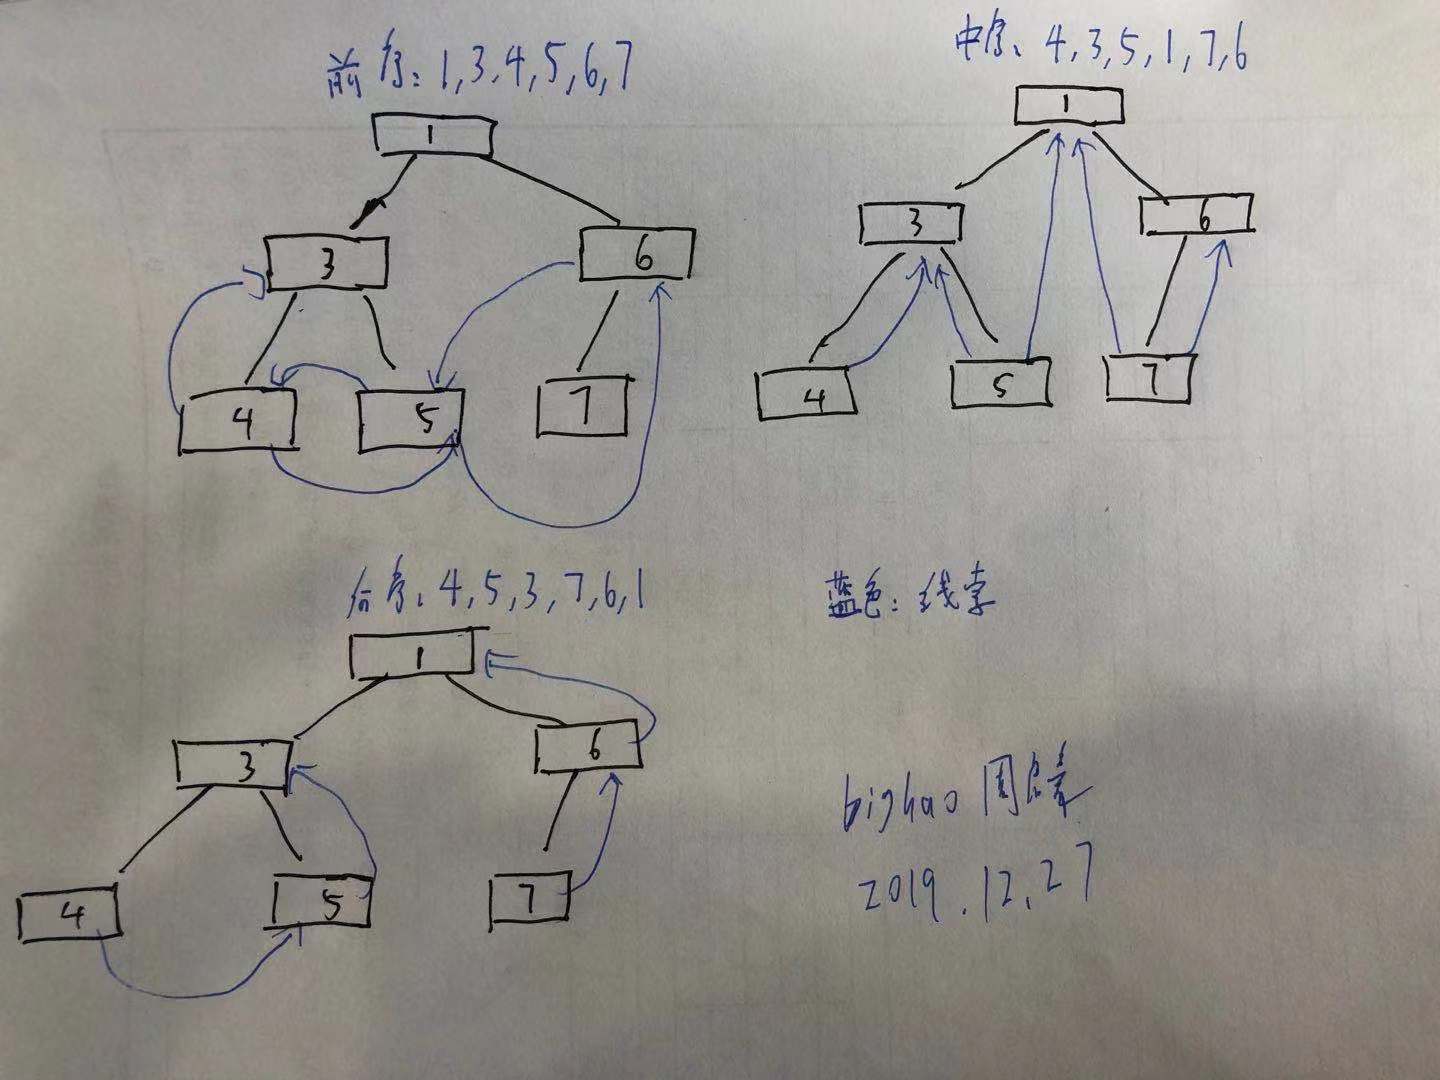 前序:1,3,4,5,6,7
1
3
6
4
5
7
中序、4,3,5,1,7,6
1
3
6
4
5
7
后序、4,5,3,7,6,1
1
3
6
4
5
7
蓝色:线索
bighao 周
2019.12.27